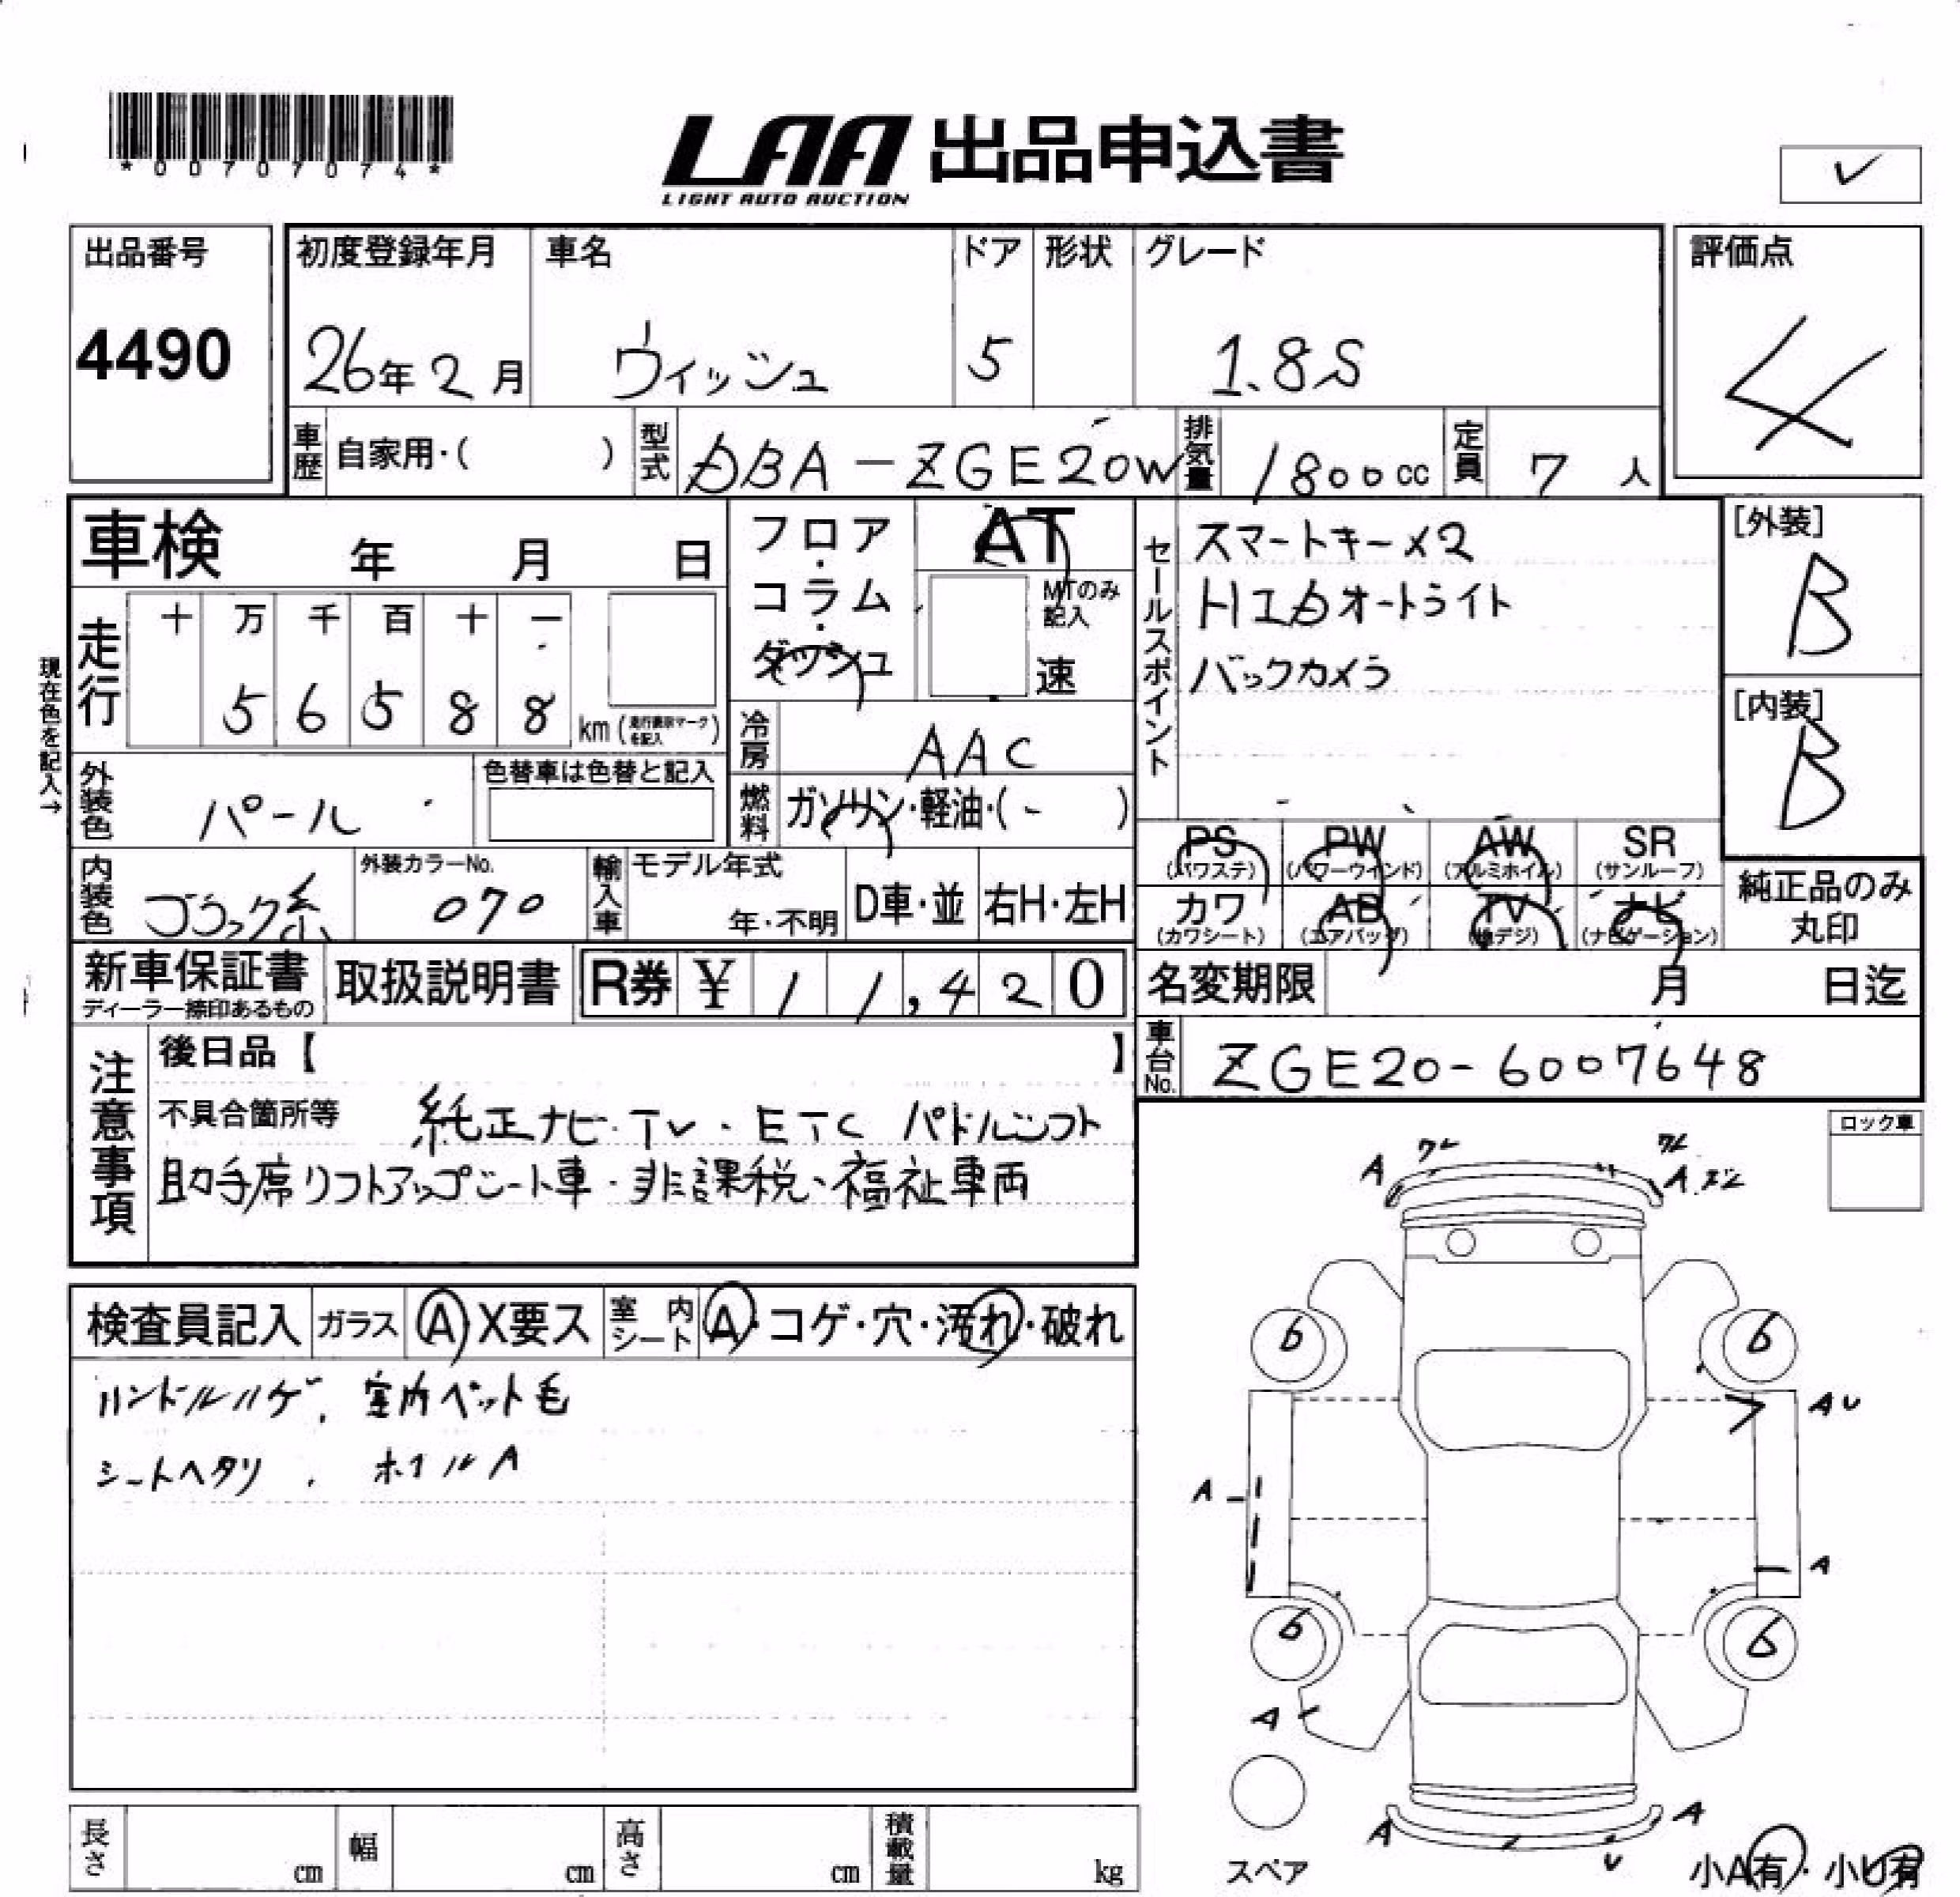 *0070707４*
LAA 出品申込書
LIGHT AUTO AUCTION
出品番号 初度登録年月 車名 ドア 形状 グレード 評価点
4490 26年2月 ヴィッシュ 5 1.8S 4
車歴 自家用・( ) 型式 DBA-ZGE20W 排気量 1800cc 定員 7人
車検 年 月 日
フロア・コラム・ダッシュ
AT
MTのみ記入
速
セールスポイント
スマートキー×2
HIDオートライト
バックカメラ
[外装]
B
[内装]
B
現在色を記入→
走行 十 万 千 百 十 一
5 6 5 8 8 km (走行表示マークを記入)
冷房 AAC
外装色 パール 色替車は色替と記入
燃料 ガソリン・軽油・(- )
PS (パワステ) PW (パワーウインド) AW (アルミホイル) SR (サンルーフ)
カワ (カワシート) AB (エアバッグ) TV (地デジ) ナビ (ナビゲーション)
純正品のみ丸印
内装色 ブラック系 外装カラーNo. 070 輸入車 モデル年式 年・不明 D車・並 右H・左H
新車保証書 ディーラー捺印あるもの 取扱説明書 R券 ¥11,420 名変期限 月 日迄
車台No. ZGE20-6007648
注意事項
後日品【 】
不具合箇所等 純正ナビ・TV・ETC パドルシフト
助手席リフトアップシート車・非課税・福祉車両
ロック車
検査員記入 ガラス A・X要ス 室内シート A・コゲ・穴・汚れ・破れ
ハンドルハゲ、室内ペット毛
シートヘタリ、ホイルA
A ワレ ワレ A
6 6
AU
A
A
6 6
A
A A
U
スペア
小A有・小U有
長さ cm 幅 cm 高さ cm 積載量 kg